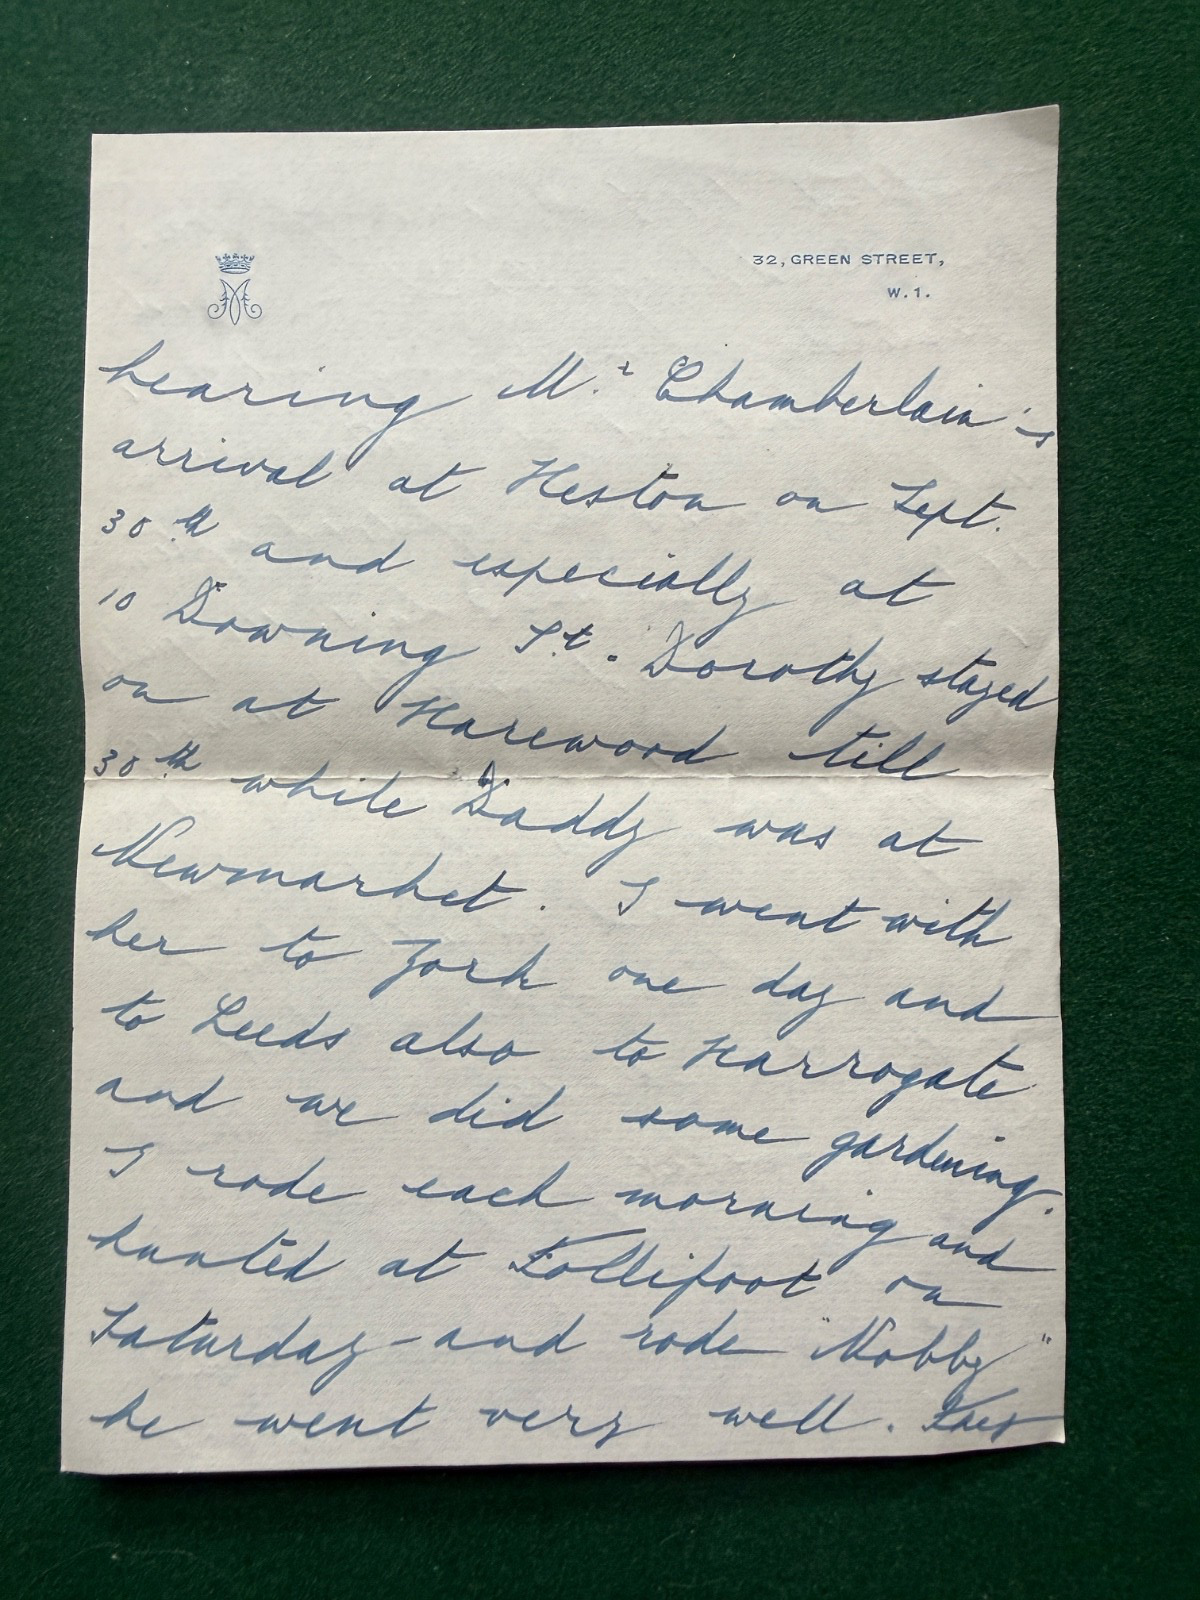 32, GREEN STREET,
W.1.
hearing Mr Chamberlain's
arrival at Heston on Sept.
30th and especially at
10 Downing St. Dorothy stayed
on at Harewood till
30th while Daddy was at
Newmarket. I went with
her to York one day and
to Leeds also to Harrogate
and we did some gardening.
I rode each morning and
hunted at Follifoot on
Saturday - and rode "Nobby"
he went very well.